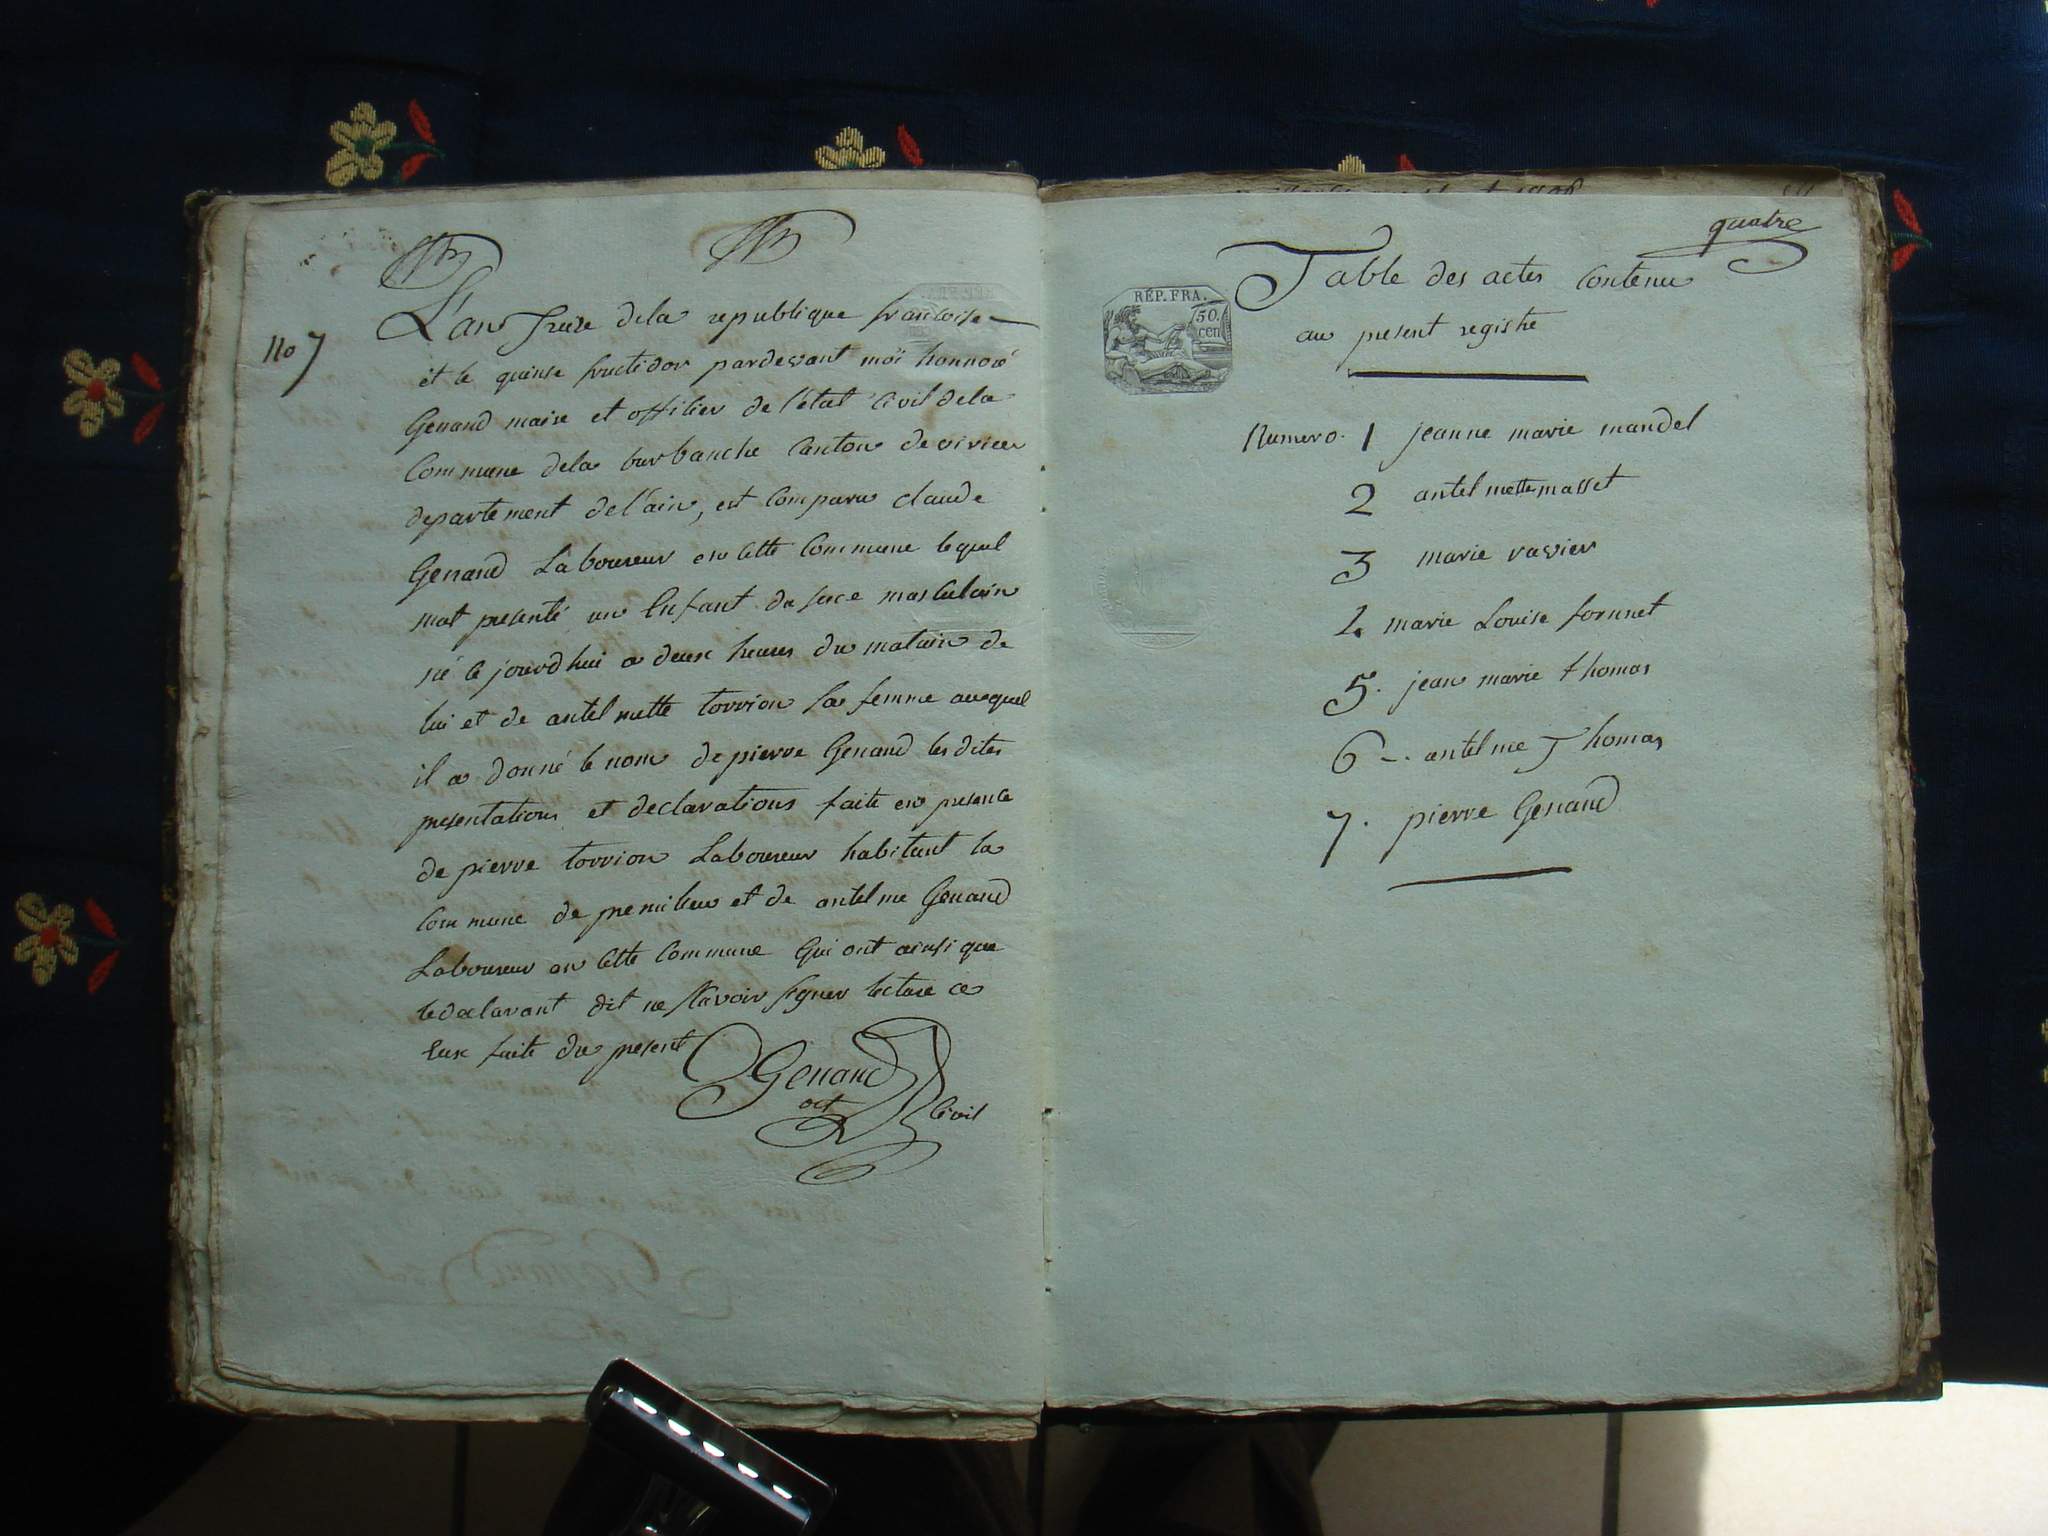 No 7
L'an treize dela republique francoise
et le quinse fructidor pardevant moi honnoré
Genand maire et offitier de l'état Civil dela
Commune dela burbanche Canton de virieu
departement de l'ain, est Comparu claude
Genand Laboureur en Cette Commune lequel
mat presenté un Enfant du sexe masculain
né ce jourdhui a deux heures du matain de
lui et de antelmette torrion sa femme auquel
il a donné le nom de pierre Genand les dites
presentations et declarations faite en presence
de pierre torrion Laboureur habitant la
Commune de premilieu et de antelme Genand
Laboureur en Cette Commune Qui ont ainsi que
le declarant dit ne scavoir signer lecture a
Eux faite du present
Genand
oct Civil
quatre
RÉP. FRA.
50.
cen
Table des actes Contenu
au present registre
Numero. 1 jeanne marie mandel
2 antelmette masset
3 marie ravier
4. marie Louise fornnet
5. jean marie thomas
6 -. antelme Thomas
7. pierre Genand